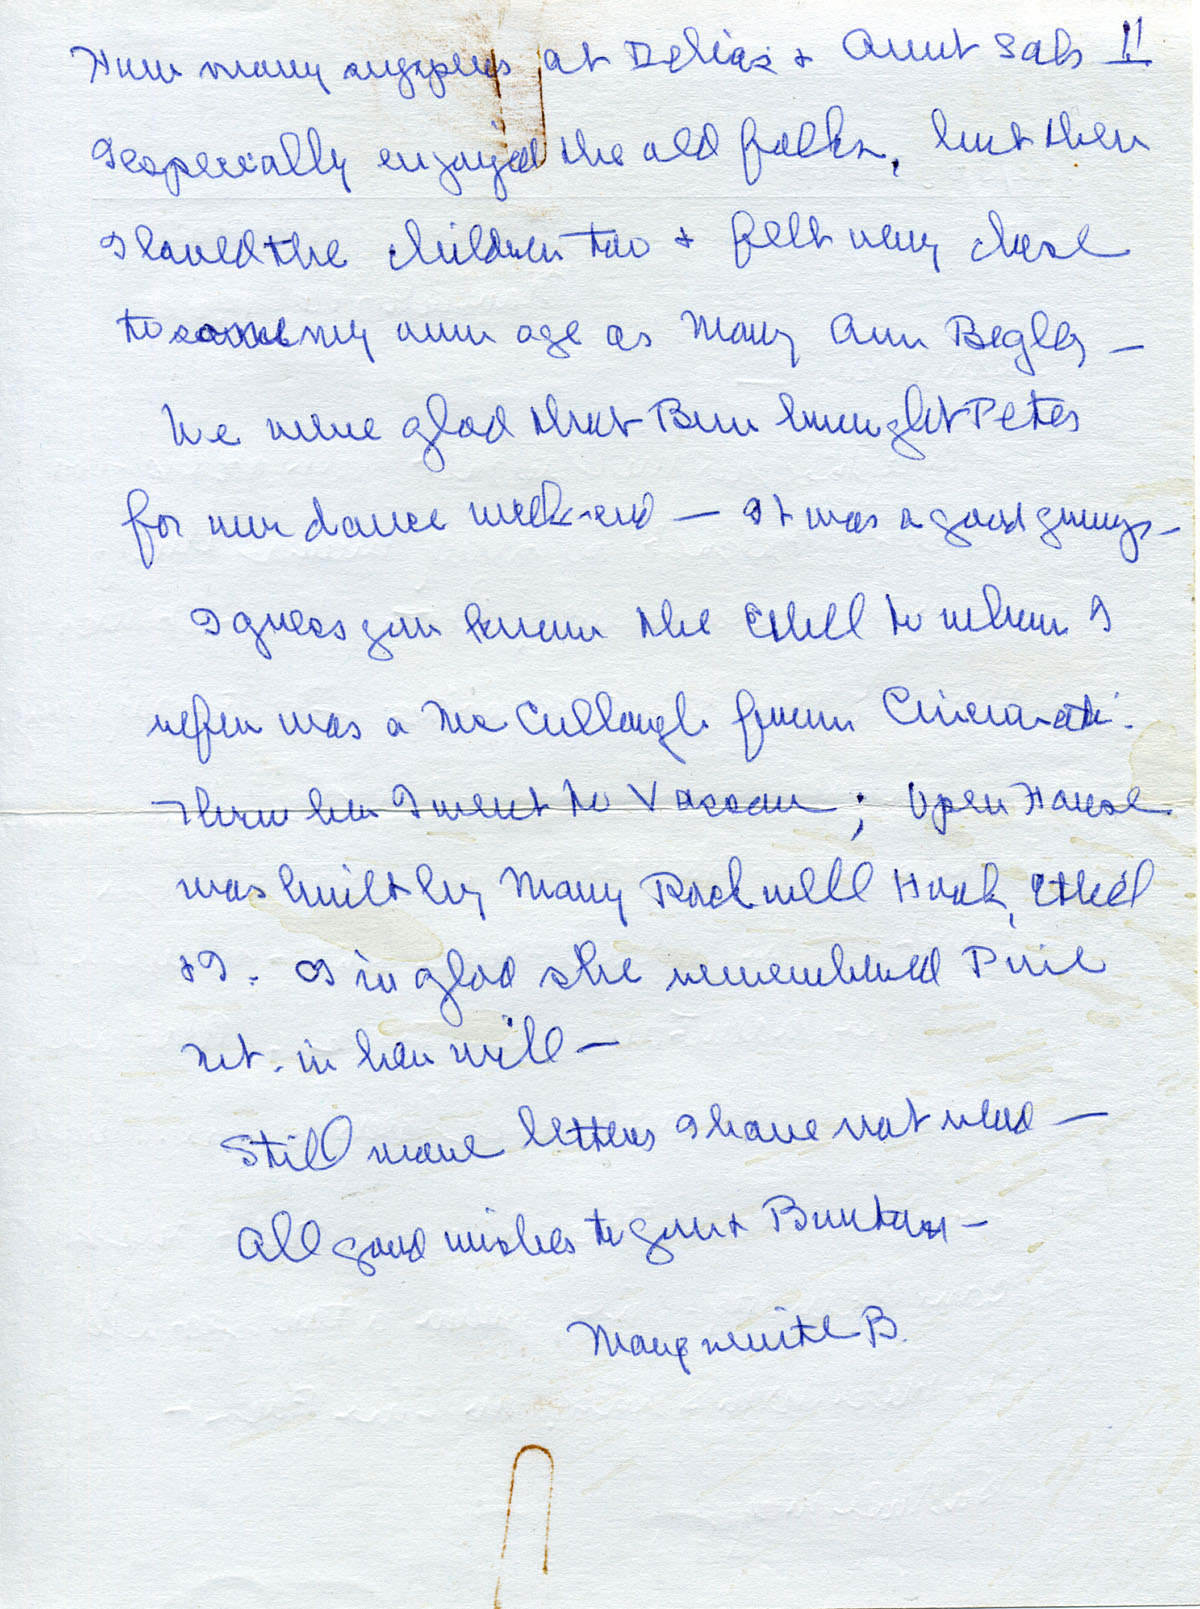 How many suppers at Delia's & Aunt Sal's !!
I especially enjoyed the old folks, but then
I loved the children too & felt very close
to some my own age as Mary Ann Begley —
We were glad that Bun brought Petes
for our dance week-end — It was a good group —
I guess you know the Ethel to whom I
refer was a McCullough from Cincinnati.
Thru her I went to Vassar; Open House
was built by Mary Rockwell Hook, Ethel
& I. I'm glad she remembered Pine
Mt. in her will —
Still more letters I have not read —
All good wishes to you & Burton —
Marguerite B.